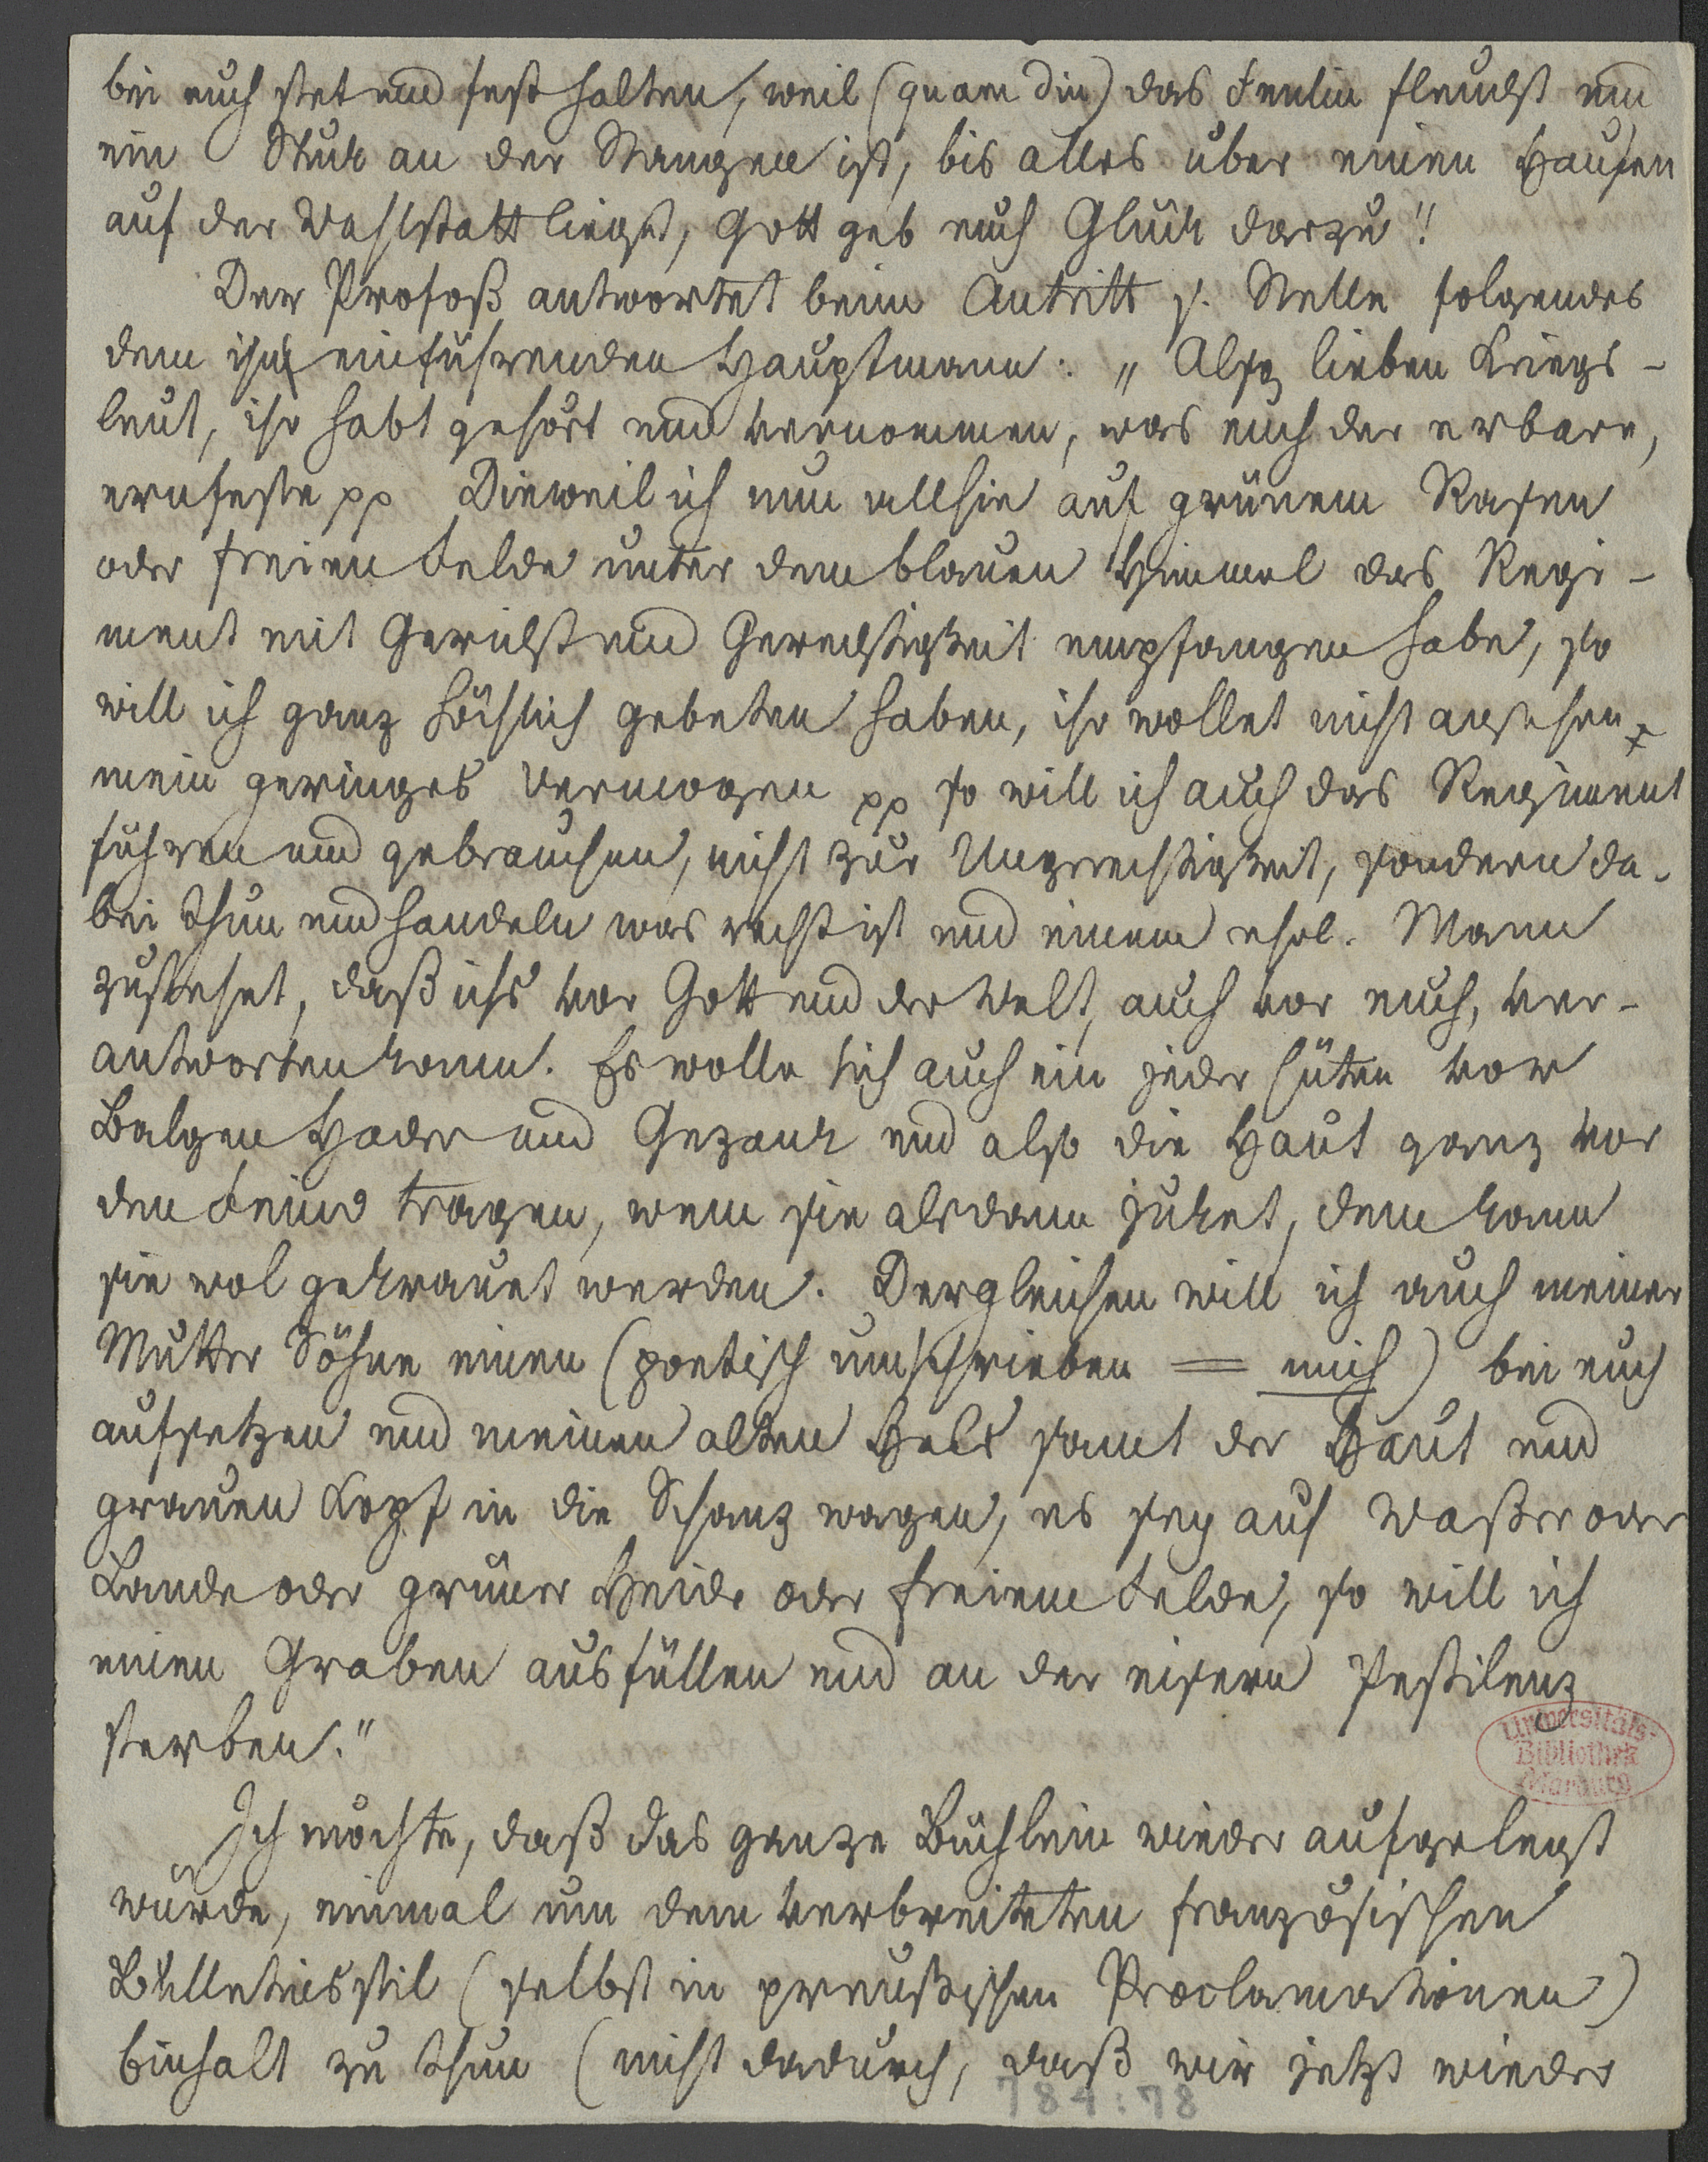 bei euch stet und fest halten, weil (quam diu) das Fenlin fleucht und
ein Stuk an der Stangen ist, bis alles über einen Haufen
auf der Wahlstatt liegt, Gott geb euch Glük darzu"!
Der Profoß antwortet beim Antritt s. Stelle folgendes
dem ihn einführenden Hauptmann: „Also lieben Kriegs-
leut, ihr habt gehört und vernommen, was euch der erbare,
ernfeste pp Dieweil ich nun allhie auf grünem Rasen
oder freiem Felde unter dem blauen Himmel das Regi-
ment mit Gericht und Gerechtigkeit empfangen habe, so
will ich ganz höchlich gebeten haben, ihr wollet nicht ansehen
mein geringes Vermogen pp so will ich auch das Regiment
führen und gebrauchen, nicht zur Ungerechtigkeit, sondern da-
bei thun und handeln was recht ist und einem ehrl. Mann
zustehet, daß ichs vor Gott und der Welt, auch vor euch, ver-
antworten kann. Es wolle sich auch ein jeder hüten vor
Balgen Hader und Gezank und also die Haut ganz vor
den Feind tragen, wem sie alsdann juket, dem kann
sie wol gekrauet werden. Dergleichen will ich auch meiner
Mutter Söhne einen (poetisch umschrieben = mich) bei euch
aufsetzen und meinen alten Hals samt der Haut und
grauen Kopf in die Schanz wagen, es sey auf Waßer oder
Lande oder grüner Heide oder freiem Felde, so will ich
einen Graben ausfüllen und an der eisern Pestilenz
sterben."
Ich möchte, daß das ganze Büchlein wieder aufgelegt
würde, einmal um dem verbreiteten französischen
Bulletinsstil (selbst in preußischen Proclamationen)
Einhalt zu thun (nicht dadurch, daß wir jetzt wieder
Universitäts-
Bibliothek
Marburg
784:78